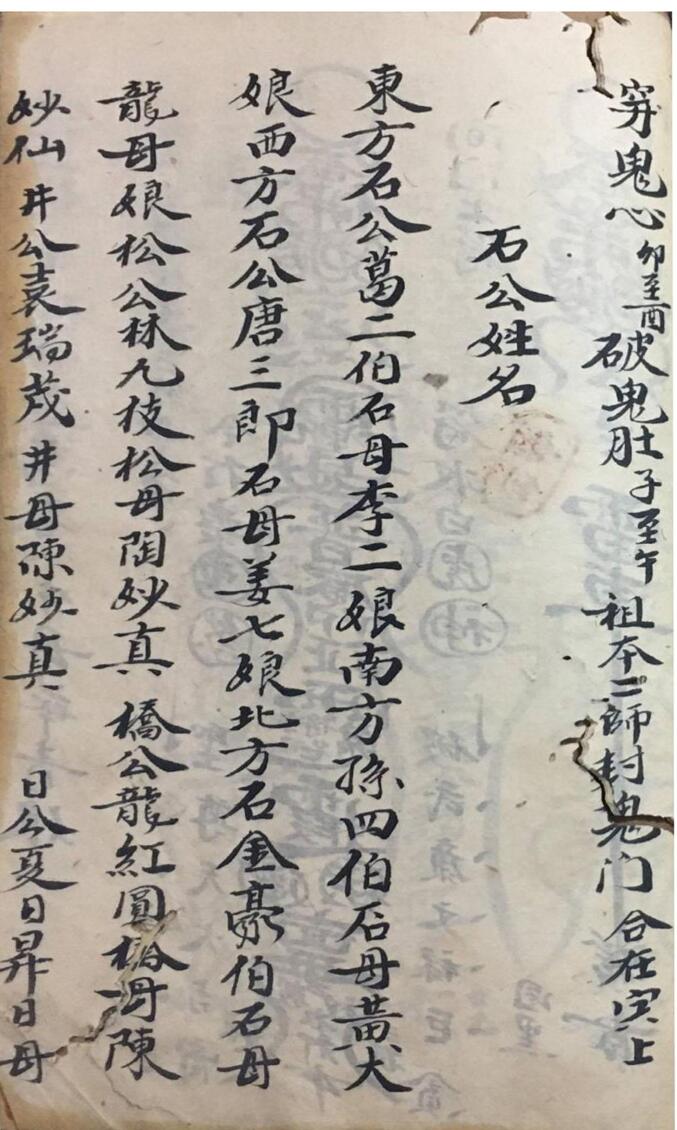 穿鬼心 卯至酉 破鬼肚 子至午 祖本二師封鬼门 合在寅上
石公姓名
東方石公葛二伯石母李二娘南方孫四伯石母黃犬
娘西方石公唐三郎石母姜七娘北方石金豪伯石母
龍母娘松公林九枝松母陶妙真 橋公龍紅圓橋母陳
妙仙 井公袁瑞茂 井母陳妙真 日公夏日昇日母